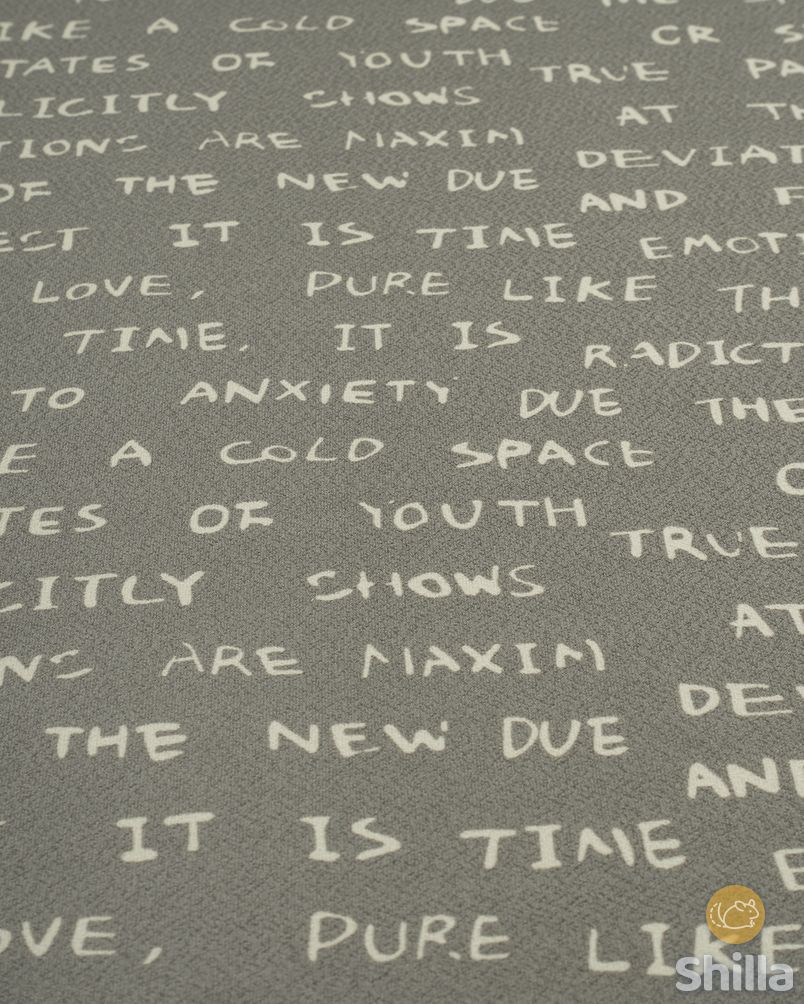 LIKE A COLD SPACE CR
STATES OF YOUTH TRUE
LICITLY SHOWS AT
TIONS ARE MAXIM DEVIAT
OF THE NEW DUE AND
ECT IT IS TIME EMOTI
LOVE, PURE LIKE TH
TIME. IT IS RADICT
TO ANXIETY DUE THE
E A COLD SPACE C
TES OF YOUTH TRUE
CITLY SHOWS AT
NS ARE MAXIM DEV
THE NEW DUE AND
IT IS TIME E
OVE, PURE LIKE
Shilla